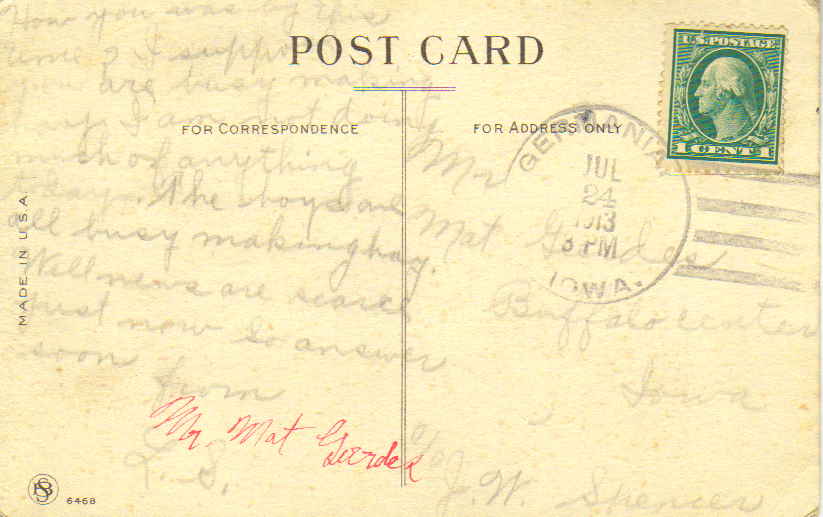 How you was by this
time? I suppose
you are busy making
hay. I am not doing
much of anything
today. The boys are
all busy making hay.
Well news are scarce
just now so answer
soon
from
L. S.
POST CARD
FOR CORRESPONDENCE
FOR ADDRESS ONLY
MADE IN U.S.A.
U.S. POSTAGE
1 CENT 1
GERMANIA,
JUL
24
1913
3 PM
IOWA.
Mr
Mat Gerdes
Buffalo center
Iowa
c/o
J. W. Spencer
Mr. Mat Gerdes
6468